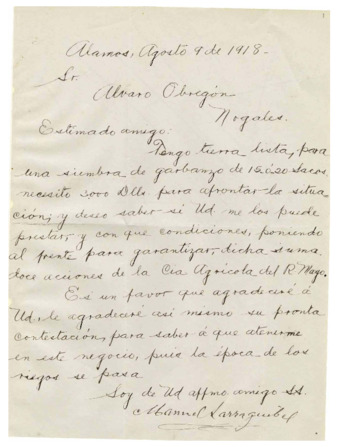 Alamos, Agosto 9 de 1918-
Sr.
Alvaro Obregón
Nogales.
Estimado amigo:
Tengo tierra lista, para
una siembra de garbanzo de 15 á 20 sacos.
necesito 3000 Dlls. para afrontar la situa-
ción, y deseo saber si Ud. me los puede
prestar, y con que condiciones, poniendo
al frente para garantizar, dicha suma
doce acciones de la Cia Agrícola del R. Mayo.
Es un favor que agradeceré á
Ud, le agradeceré asi mismo su pronta
contestación, para saber á que atenerme
en este negocio, pues la época de los
riegos se pasa
Soy de Ud affmo amigo SS.
Manuel